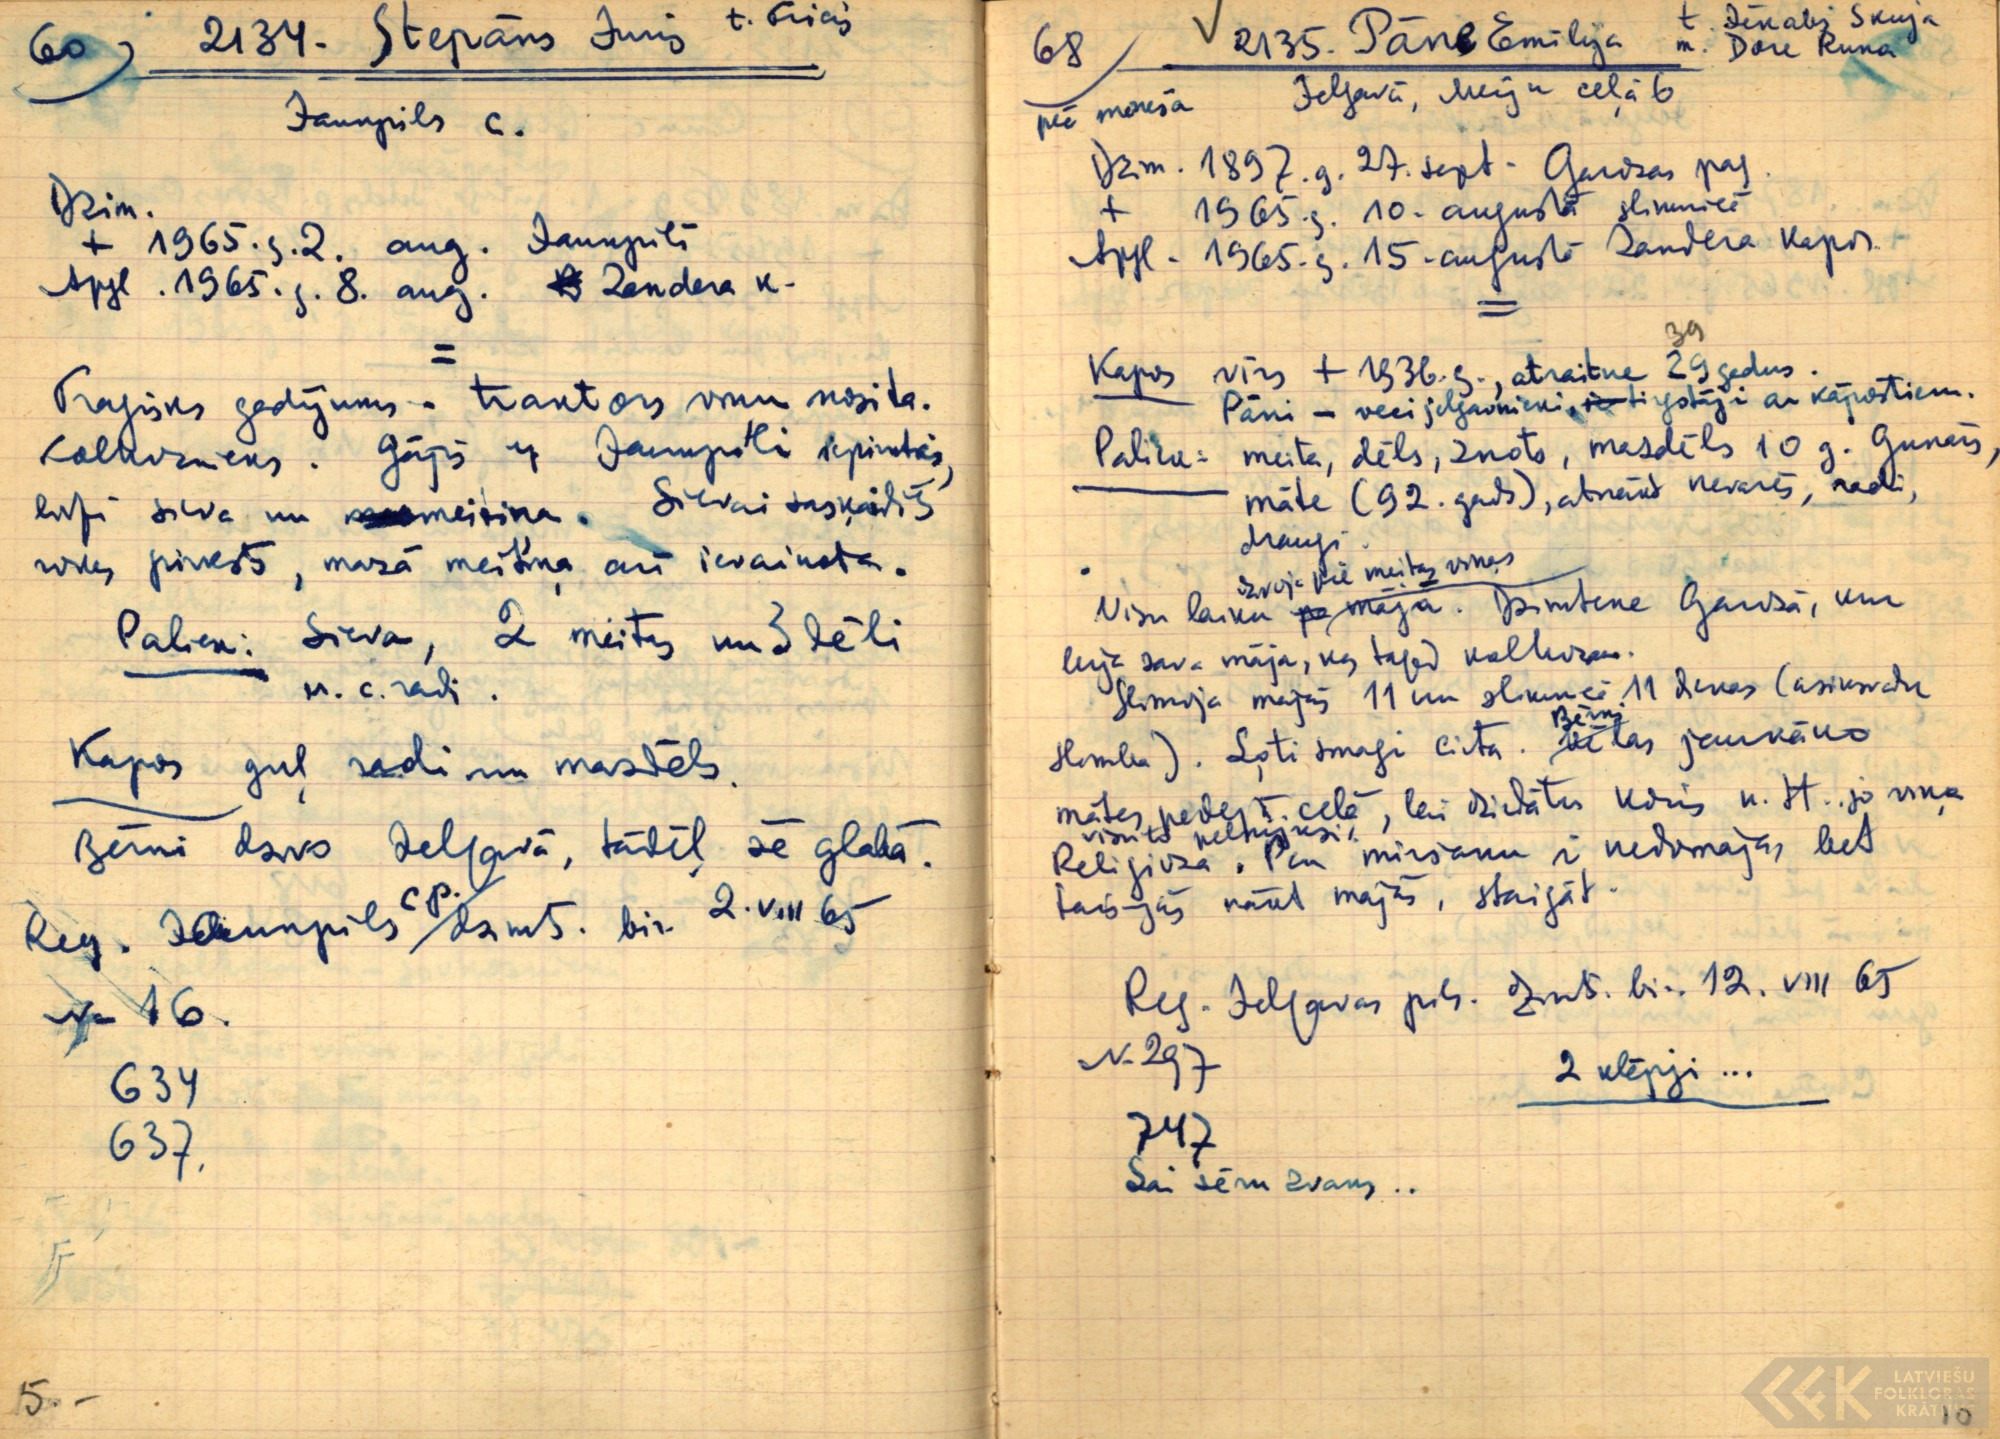 60) 2134. Stepāns Juris t. Fricis
Jaunpils c.
Dzim.
+ 1965.g.2. aug. Jaunpilī
Apgl. 1965.g. 8. aug. Zandera k.
=
Tragisks gadījums - traktors viņu nosita.
Kolhoznieks. Gājis uz Jaunpili iepirkties,
līdzi sieva un meitiņa. Sievai saskaldīti
rokas pirksti, mazā meitiņa arī ievainota.
Paliek: Sieva, 2 meitas un 3 dēli
u. c. radi.
Kapos guļ radi un mazdēls.
Bērni dzīvo Jelgavā, tādēļ šē glabā.
Reg. Jaunpils cp. dzimts. bir. 2. VIII 65
N- 16.
634
637.
5.-
68 √ 2135. Pāne Emīlija t. Jēkabs Skuja
m. Dore Runa
Jelgavā, Meiju ceļā 6
pēc
Dzim. 1897.g. 27. sept - Gauras pag.
+ 1965.g. 10. augustā slimnīcā
Apgl - 1965.g. 15. augustā Zandera kapos.
=
39
Kapos vīrs + 1936.g., atraitne 29 gadus.
Pāni - veci jelgavnieki, tirgotāji ar kāpostiem.
Paliek: meita, dēls, znots, mazdēls 10 g. Gunārs,
māte (92. gads), atnākt nevarēs, radi,
draugi.
dzīvoja pie meitas viņas
Visu laiku pa māja. Dzimtene Gaurā, kur
bija sava māja, kas tagad kolhozam.
Slimoja mājās 11 un slimnīcā 11 dienas (asinsvadu
Bērni
slimība). Ļoti smagi cieta. vēlas jaukāko
mātes pedējā ceļā, lai dziedātu koris u. tt.. jo viņa
Religioza. Par miršanu i nedomājas bet
taisījās nākt mājās, staigāt.
Reg. Jelgavas pils. Dzimts. bir. 12. VIII 65
N- 297
2 klēpji ...
747
Lai sēru zvans ..
10
LATVIEŠU
FOLKLORAS
KRĀTUVE